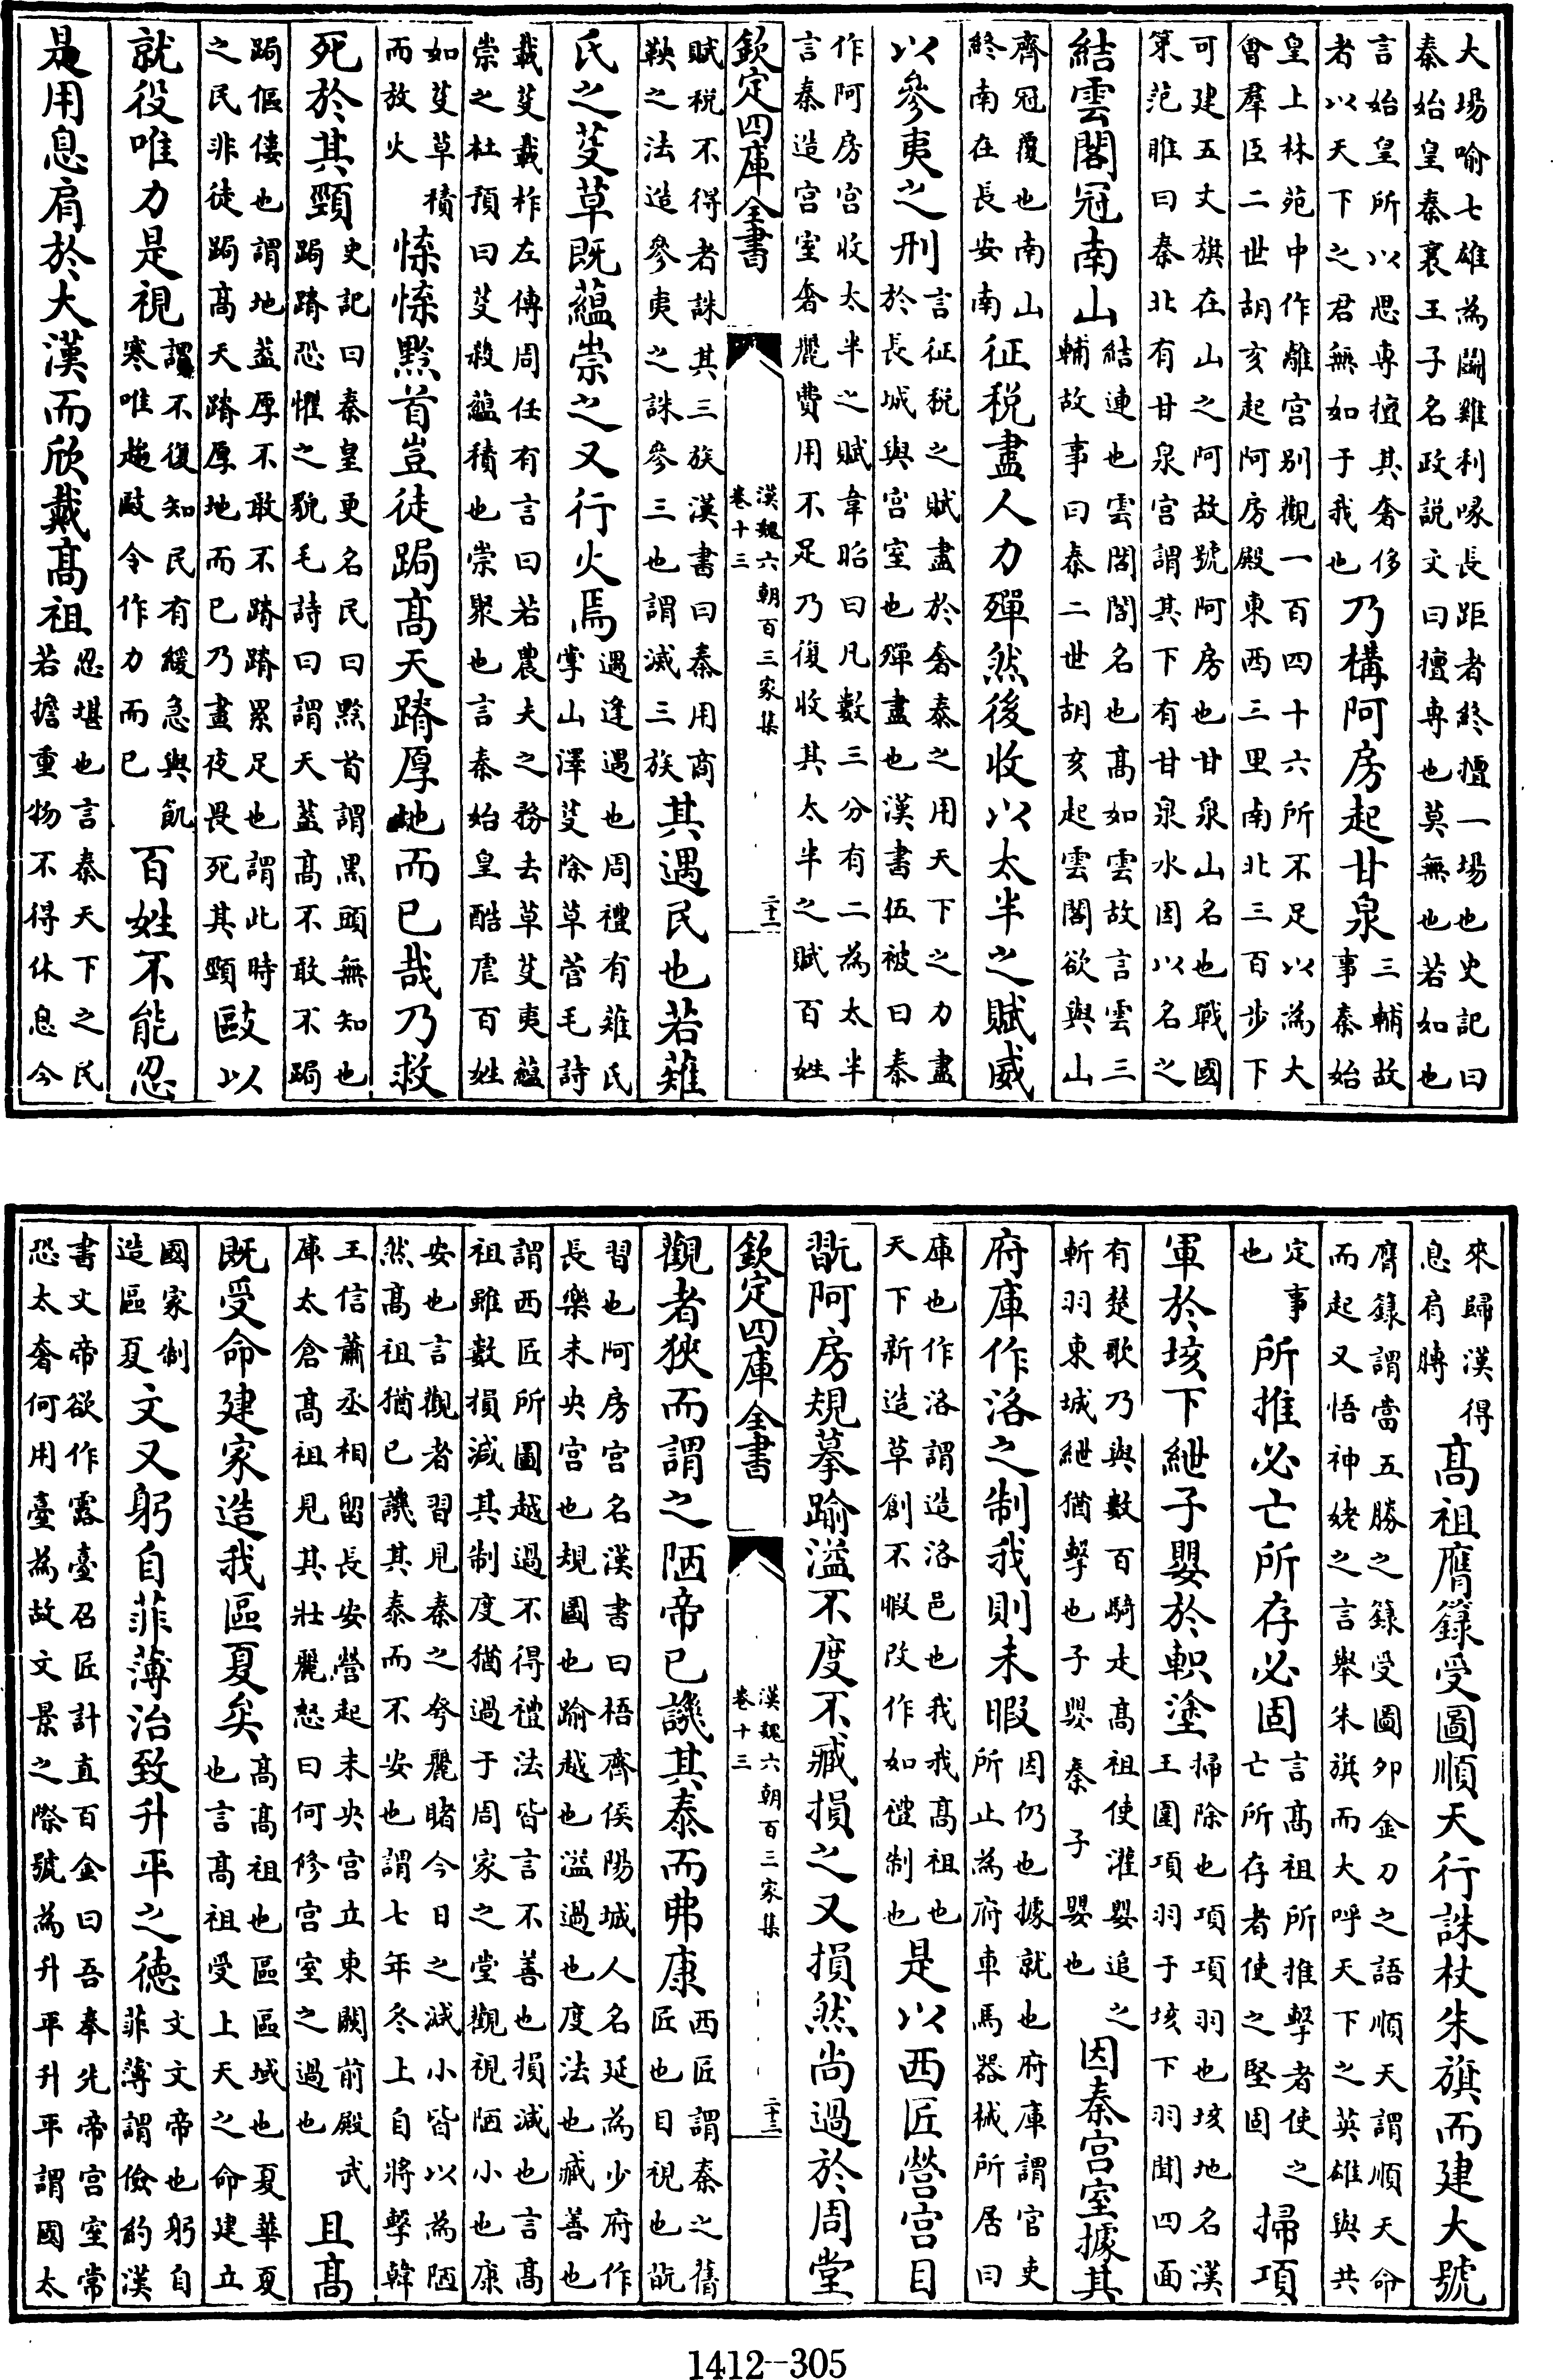 大場喻七雄為鬬雞利喙長距者終擅一場也史記曰
秦始皇秦襄王子名政説文曰擅専也莫無也若如也
言始皇所以思専擅其奢侈
者以天下之君無如于我也
乃構阿房起甘泉
三輔故
事秦始
皇上林苑中作離宫别觀一百四十六所不足以為大
會羣臣二世胡亥起阿房殿東西三里南北三百步下
可建五丈旗在山之阿故號阿房也甘泉山名也戰國
策范雎曰秦北有甘泉宫謂其下有甘泉水因以名之
結雲閣冠南山
結連也雲閣閣名也髙如雲故言雲三
輔故事曰秦二世胡亥起雲閣欲與山
齊冠覆也南山
終南在長安南
征税盡人力殫然後收以太半之賦威
以參夷之刑
言征税之賦盡於奢泰之用天下之力盡
於長城與宫室也殫盡也漢書伍被曰秦
作阿房宫收太半之賦韋昭曰凡數三分有二為太半
言秦造宫室奢麗費用不足乃復收其太半之賦百姓
欽定四庫全書
漢魏六朝百三家集
卷十三
二十二
賦税不得者誅其三族漢書曰秦用商
鞅之法造參夷之誅參三也謂滅三族
其遇民也若薙
氏之芟草既蘊崇之又行火焉
遇逢遇也周禮有薙氏
掌山澤芟除草菅毛詩
載芟載柞左傳周任有言曰若農夫之務去草芟夷蘊
崇之杜預曰芟殺蘊積也崇聚也言秦始皇酷虐百姓
如芟草積
而放火
愫愫黔首豈徒跼髙天蹐厚地而已哉乃救
死於其頸
史記曰秦皇更名民曰黔首謂黑頭無知也
跼蹐恐懼之貌毛詩曰謂天葢髙不敢不跼
跼傴僂也謂地葢厚不敢不蹐蹐累足也謂此時
之民非徒跼髙天蹐厚地而已乃晝夜畏死其頸
敺以
就役唯力是視
謂不復知民有緩急與飢
寒唯趨敺令作力而已
百姓不能忍
是用息肩於大漢而欣戴髙祖
忍堪也言秦天下之民
若擔重物不得休息今
來歸漢得
息肩膊
髙祖膺籙受圖順天行誅杖朱旗而建大號
膺籙謂當五勝之籙受圖夘金刀之語順天謂順天命
而起又悟神姥之言舉朱旗而大呼天下之英雄與共
定事
也
所推必亡所存必固
言髙祖所推擊者使之
亡所存者使之堅固
掃項
軍於垓下紲子嬰於軹塗
掃除也項項羽也垓地名漢
王圍項羽于垓下羽聞四面
有楚歌乃與數百騎走髙祖使灌嬰追之
斬羽東城紲猶擊也子嬰秦子嬰也
因秦宫室據其
府庫作洛之制我則未暇
因仍也據就也府庫謂官吏
所止為府車馬器械所居曰
庫也作洛謂造洛邑也我我髙祖也
天下新造草創不暇改作如禮制也
是以西匠營宫目
翫阿房規摹踰溢不度不臧損之又損然尚過於周堂
欽定四庫全書
漢魏六朝百三家集
卷十三
二十三
觀者狹而謂之陋帝已譏其泰而弗康
西匠謂秦之舊
匠也目視也翫
習也阿房宫名漢書曰梧齊侯陽城人名延為少府作
長樂未央宫也規圖也踰越也溢過也度法也臧善也
謂西匠所圖越過不得禮法皆言不善也損減也言髙
祖雖數損減其制度猶過于周家之堂觀視陋小也康
安也言觀者習見秦之夸麗睹今日之減小皆以為陋
然髙祖猶已譏其泰而不安也謂七年冬上自將擊韓
王信蕭丞相留長安營起未央宫立東闕前殿武
庫太倉髙祖見其壯麗怒曰何修宫室之過也
且髙
既受命建家造我區夏矣
髙髙祖也區區域也夏華夏
也言髙祖受上天之命建立
國家制
造區夏
文又躬自菲薄治致升平之徳
文文帝也躬自
菲薄謂儉約漢
書文帝欲作露臺召匠計直百金曰吾奉先帝宫室常
恐太奢何用臺為故文景之際號為升平升平謂國太
1412-305